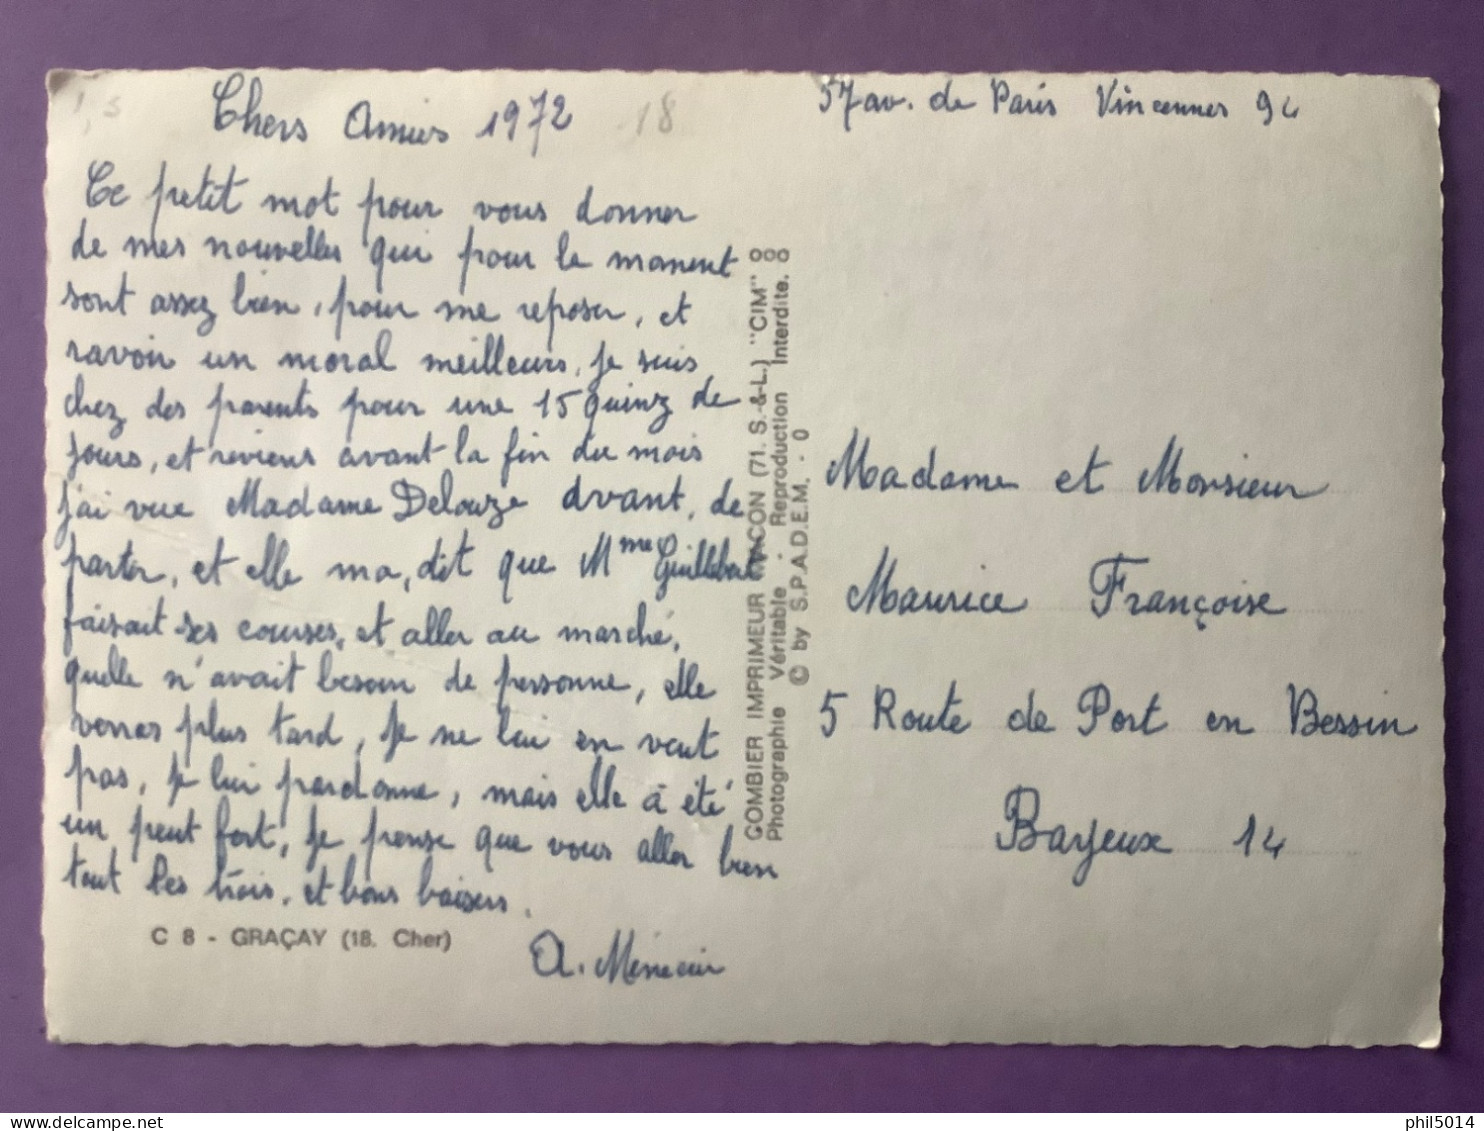 Chers Amies 1972
18
Ce petit mot pour vous donner
de mes nouvelles qui pour le moment
sont assez bien, pour me reposer, et
ravoir un moral meilleurs, je suis
chez des parents pour une 15 quinz de
jours, et reviens avant la fin du mois
j'ai vue Madame Delouze avant, de
parter, et elle ma, dit que Mme Guillebert
faisait ses courses, et aller au marché,
quelle n'avait besoin de personne, elle
verras plus tard, je ne lui en veut
pas, je lui pardonne, mais elle à été
un peut fort, je pense que vous aller bien
tout les trois, et bons baisers.
A.
C 8 - GRAÇAY (18. Cher)
GOMBIER IMPRIMEUR MACON (71. S.-&-L.) "CIM"
Photographie Véritable - Reproduction Interdite.
© by S.P.A.D.E.M. - 0
57 av. de Paris Vincennes 94
Madame et Monsieur
Maurice Françoise
5 Route de Port en Bessin
Bayeux 14
phil5014